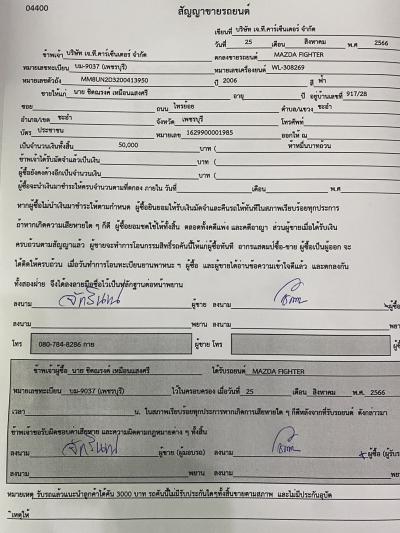 04400
สัญญาขายรถยนต์
เขียนที่ บริษัท เจ.ที.คาร์เซ็นเตอร์ จำกัด
วันที่ 25 เดือน สิงหาคม พ.ศ 2566
ข้าพเจ้า บริษัท เจ.ที.คาร์เซ็นเตอร์ จำกัด ตกลงขายรถยนต์ MAZDA FIGHTER
หมายเลขทะเบียน บม-9037 (เพชรบุรี) หมายเลขเครื่องยนต์ WL-308269
หมายเลขตัวถัง MM8UN2D3200413950 ปี 2006 สี ฟ้า
ขายให้แก่ นาย ชิดณรงค์ เหมือนแสงศรี อายุ ปี อยู่บ้านเลขที่ 917/28
ซอย ถนน ไทรย้อย ตำบล/แขวง ชะอำ
อำเภอ/เขต ชะอำ จังหวัด เพชรบุรี โทรศัพท์
บัตร ประชาชน หมายเลข 1629900001985 ออกให้ ณ
เป็นจำนวนเงินทั้งสิ้น 50,000 บาท ( ห้าหมื่นบาทถ้วน
ข้าพเจ้าได้รับมัดจำแล้วเป็นเงิน บาท (
ผู้ซื้อยังคงค้างอีกเป็นจำนวนเงิน บาท (
ผู้ซื้อจะนำเงินมาชำระให้ครบจำนวนตามที่ตกลง ภายใน วันที่ เดือน พ.ศ
หากผู้ซื้อไม่นำเงินมาชำระให้ตามกำหนด ผู้ซื้อยินยอมให้ริบเงินมัดจำและคืนรถให้ทันทีในสภาพเรียบร้อยทุกประการ
ถ้าหากเกิดความเสียหายใด ๆ ก็ดี ผู้ซื้อยอมชดใช้ให้ทั้งสิ้น ตลอดทั้งคดีแพ่ง และคดีอาญา ส่วนผู้ขายเมื่อได้รับเงิน
ครบถ้วนตามสัญญาแล้ว ผู้ขายจะทำการโอนกรรมสิทธิ์รถคันนี้ให้แก่ผู้ซื้อทันที อากรแสตมป์ซื้อ-ขาย ผู้ซื้อเป็นผู้ออก จะ
ได้คิดให้ครบถ้วน เมื่อวันทำการโอนทะเบียนยานพาหนะ ฯ ผู้ซื้อ และผู้ขายได้อ่านข้อความเข้าใจดีแล้ว และตกลงกัน
ทั้งสองฝ่าย จึงได้ลงลายมือชื่อไว้เป็นหลักฐานต่อหน้าพยาน
ลงนาม ผู้ขาย ลงนาม ผู้ซื้อ
ลงนาม พยาน ลงนาม พยาน
โทร 080-784-8286 กาย ผู้ขาย โทร
ข้าพเจ้าผู้ซื้อ นาย ชิดณรงค์ เหมือนแสงศรี ได้รับรถยนต์ MAZDA FIGHTER
หมายเลขทะเบียน บม-9037 (เพชรบุรี) ไว้ในครอบครอง เมื่อวันที่ 25 เดือน สิงหาคม พ.ศ 2566
เวลา น. ในสภาพเรียบร้อยทุกประการหากเกิดการเสียหายใด ๆ ก็ดีหลังจากที่รับรถยนต์ ดังกล่าวมา
ข้าพเจ้าขอรับผิดชอบค่าเสียหาย และความผิดตามกฎหมายต่าง ๆ ทั้งสิ้น
ลงนาม ผู้ขาย (ผู้มอบรถ) ลงนาม ผู้ซื้อ (ผู้รับรถ
ลงนาม พยาน ลงนาม พยาน
หมายเหตุ รับรถแล้วแนะนำลูกค้าได้คัน 3000 บาท รถคันนี้ไม่มีรับประกันใดๆทั้งสิ้นขายตามสภาพ และไม่มีประกันอุบัติ
เหตุให้